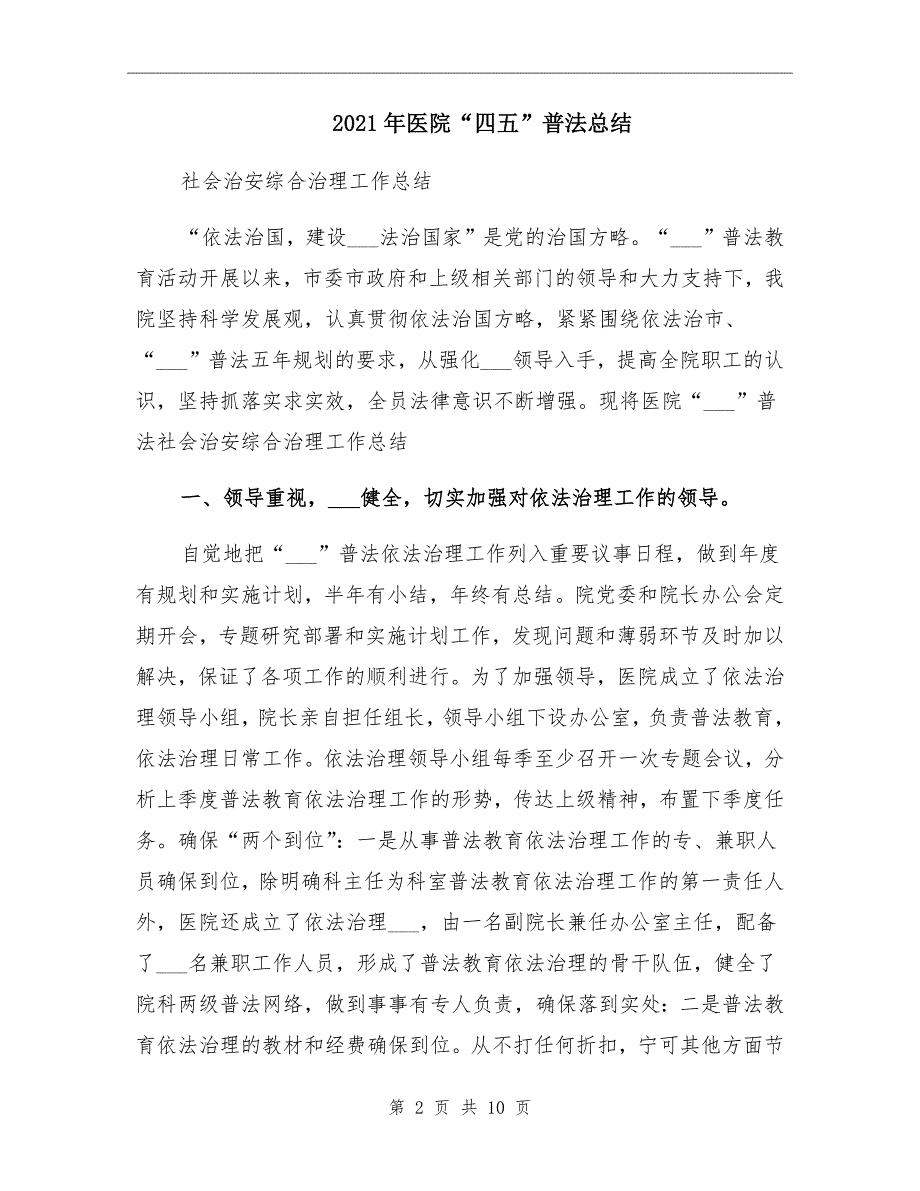 2021年医院“四五”普法总结
社会治安综合治理工作总结
“依法治国，建设___法治国家”是党的治国方略。“___”普法教
育活动开展以来，市委市政府和上级相关部门的领导和大力支持下，我
院坚持科学发展观，认真贯彻依法治国方略，紧紧围绕依法治市、
“___”普法五年规划的要求，从强化___领导入手，提高全院职工的认
识，坚持抓落实求实效，全员法律意识不断增强。现将医院“___”普
法社会治安综合治理工作总结
一、领导重视，___健全，切实加强对依法治理工作的领导。
自觉地把“___”普法依法治理工作列入重要议事日程，做到年度
有规划和实施计划，半年有小结，年终有总结。院党委和院长办公会定
期开会，专题研究部署和实施计划工作，发现问题和薄弱环节及时加以
解决，保证了各项工作的顺利进行。为了加强领导，医院成立了依法治
理领导小组，院长亲自担任组长，领导小组下设办公室，负责普法教育，
依法治理日常工作。依法治理领导小组每季至少召开一次专题会议，分
析上季度普法教育依法治理工作的形势，传达上级精神，布置下季度任
务。确保“两个到位”：一是从事普法教育依法治理工作的专、兼职人
员确保到位，除明确科主任为科室普法教育依法治理工作的第一责任人
外，医院还成立了依法治理___，由一名副院长兼任办公室主任，配备
了___名兼职工作人员，形成了普法教育依法治理的骨干队伍，健全了
院科两级普法网络，做到事事有专人负责，确保落到实处：二是普法教
育依法治理的教材和经费确保到位。从不打任何折扣，宁可其他方面节
第 2 页 共 10 页